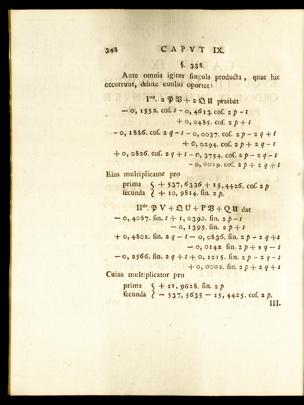 348 CAPVT IX.
§. 338.
Ante omnia igitur singula producta, quae hic
occurrunt, debite euolui oportet:
I^mo. 2 𝔓𝔙 + 2 𝔔𝔘 praebet
— 0, 1552. cos. t — 0, 4613. cos. 2 p - t
+ 0, 0485. cos. 2 p + t
— 0, 1886. cos. 2 q - t — 0, 0037. cos. 2 p - 2 q + t
+ 0, 0294. cos. 2 p + 2 q - t
+ 0, 0826. cos. 2 q + t — 0, 3754. cos. 2 p - 2 q - t
— 0, 0029. cos. 2 p + 2 q + t
Eius multiplicator pro
prima { + 537, 6336 + 15, 4426. cos. 2 p
secunda { + 10, 9814. sin. 2 p.
II^do. 𝔓 V + 𝔔 U + P 𝔙 + Q 𝔘 dat
— 0, 4087. sin. t + 1, 0390. sin. 2 p - t
— 0, 1395. sin. 2 p + t
+ 0, 4802. sin. 2 q - t — 0, 0836. sin. 2 p - 2 q + t
— 0, 0142 sin. 2 p + 2 q - t
— 0, 2566. sin. 2 q + t + 0, 1215. sin. 2 p - 2 q - t
+ 0, 0002. sin. 2 p + 2 q + t
Cuius multiplicator pro
prima { + 21, 9628. sin. 2 p
secunda { — 537, 5635 — 15, 4425. cos. 2 p.
III.